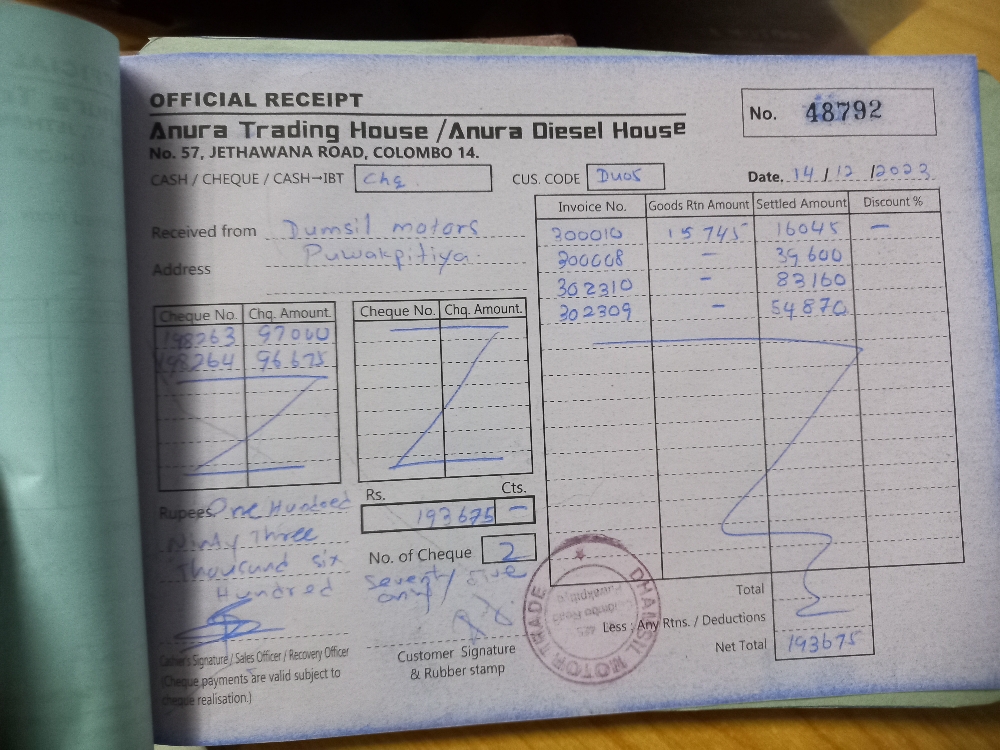 OFFICIAL RECEIPT
No. 48792
Anura Trading House / Anura Diesel House
No. 57, JETHAWANA ROAD, COLOMBO 14.
CASH / CHEQUE / CASH→IBT Chq CUS. CODE DU05 Date. 14 / 12 / 2023
Invoice No. Goods Rtn Amount Settled Amount Discount %
300010 15745 16045 –
300008 – 39600
302310 – 83160
302309 – 54870
Received from Dumsil motors
Address Puwakpitiya
Cheque No. Chq. Amount.
198263 97000
198264 96675
Cheque No. Chq. Amount.
Rupees One Hundred
Ninty Three
Thousand six
Hundred
Seventy five
only
Rs. Cts.
193675 –
No. of Cheque 2
Total
Less ; Any Rtns. / Deductions
Net Total 193675
Cashier's Signature / Sales Officer / Recovery Officer
(Cheque payments are valid subject to
cheque realisation.)
Customer Signature
& Rubber stamp
DHAMSIL MOTOR TRADE
Colombo Road
Puwakpitiya